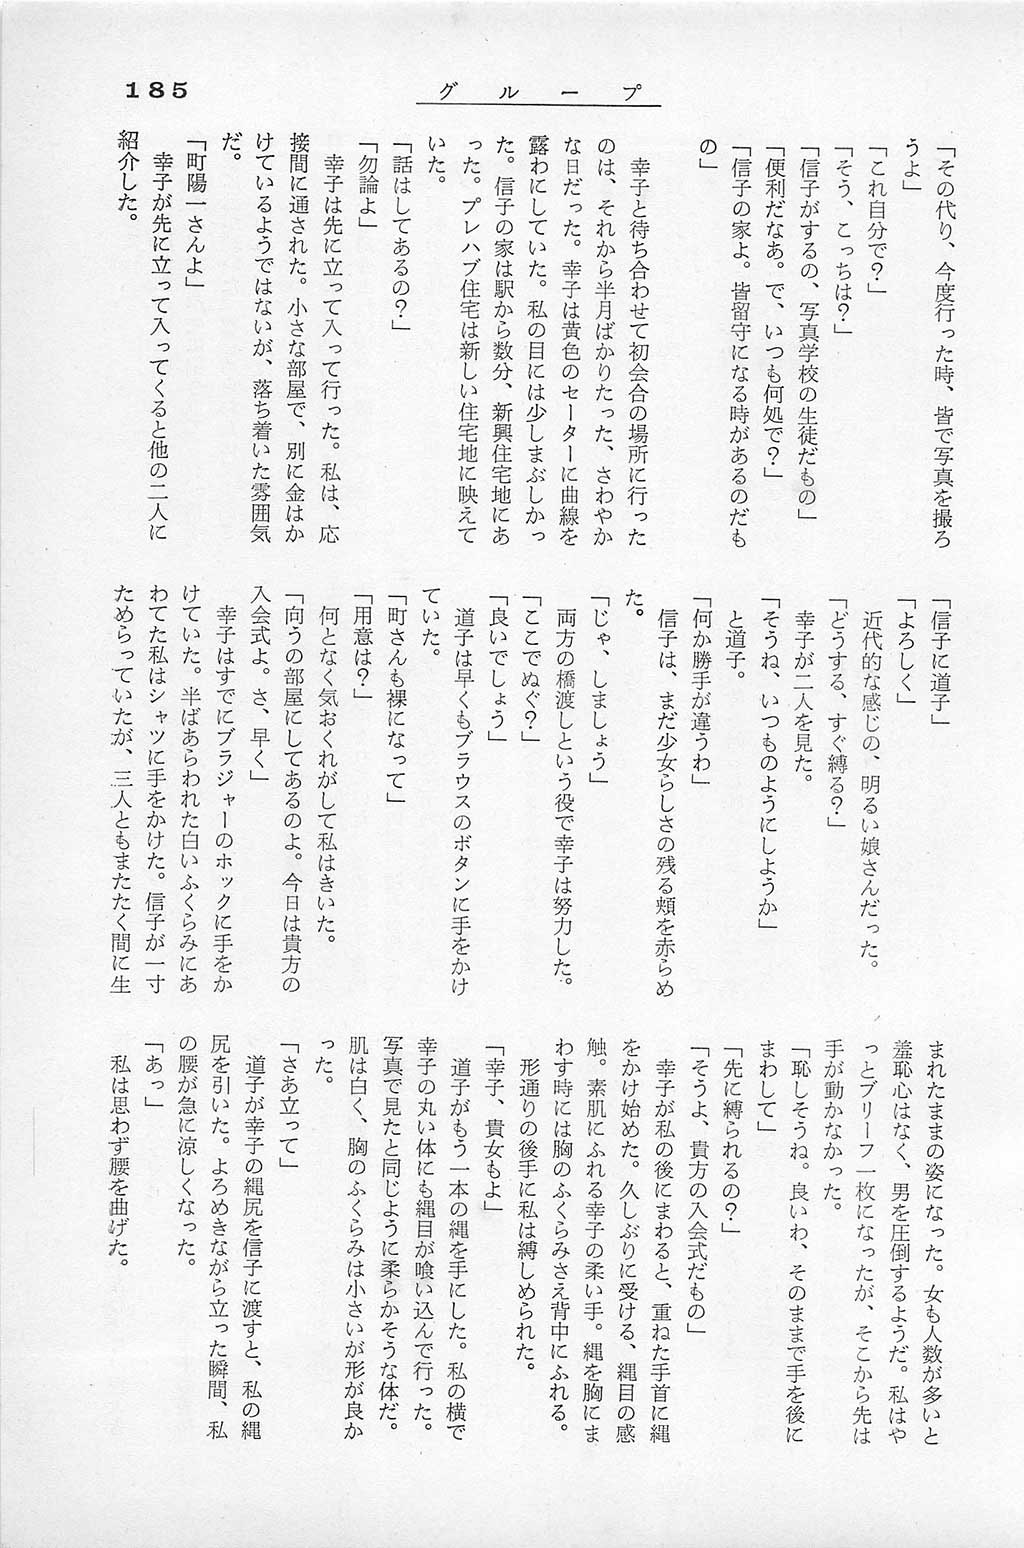 185
グループ
「その代り、今度行った時、皆で写真を撮ろ
うよ」
「これ自分で?」
「そう、こっちは?」
「信子がするの、写真学校の生徒だもの」
「便利だなあ。で、いつも何処で?」
「信子の家よ。皆留守になる時があるのだも
の」
幸子と待ち合わせて初会合の場所に行った
のは、それから半月ばかりたった、さわやか
な日だった。幸子は黄色のセーターに曲線を
露わにしていた。私の目には少しまぶしかっ
た。信子の家は駅から数分、新興住宅地にあ
った。プレハブ住宅は新しい住宅地に映えて
いた。
「話はしてあるの?」
「勿論よ」
幸子は先に立って入って行った。私は、応
接間に通された。小さな部屋で、別に金はか
けているようではないが、落ち着いた雰囲気
だ。
「町陽一さんよ」
幸子が先に立って入ってくると他の二人に
紹介した。
「信子に道子」
「よろしく」
近代的な感じの、明るい娘さんだった。
「どうする、すぐ縛る?」
幸子が二人を見た。
「そうね、いつものようにしようか」
と道子。
「何か勝手が違うわ」
信子は、まだ少女らしさの残る頬を赤らめ
た。
「じゃ、しましょう」
両方の橋渡しという役で幸子は努力した。
「ここでぬぐ?」
「良いでしょう」
道子は早くもブラウスのボタンに手をかけ
ていた。
「町さんも裸になって」
「用意は?」
何となく気おくれがして私はきいた。
「向うの部屋にしてあるのよ。今日は貴方の
入会式よ。さ、早く」
幸子はすでにブラジャーのホックに手をか
けていた。半ばあらわれた白いふくらみにあ
わてた私はシャツに手をかけた。信子が一寸
ためらっていたが、三人ともまたたく間に生
まれたままの姿になった。女も人数が多いと
羞恥心はなく、男を圧倒するようだ。私はや
っとブリーフ一枚になったが、そこから先は
手が動かなかった。
「恥しそうね。良いわ、そのままで手を後に
まわして」
「先に縛られるの?」
「そうよ、貴方の入会式だもの」
幸子が私の後にまわると、重ねた手首に縄
をかけ始めた。久しぶりに受ける、縄目の感
触。素肌にふれる幸子の柔い手。縄を胸にま
わす時には胸のふくらみさえ背中にふれる。
形通りの後手に私は縛しめられた。
「幸子、貴女もよ」
道子がもう一本の縄を手にした。私の横で
幸子の丸い体にも縄目が喰い込んで行った。
写真で見たと同じように柔らかそうな体だ。
肌は白く、胸のふくらみは小さいが形が良か
った。
「さあ立って」
道子が幸子の縄尻を信子に渡すと、私の縄
尻を引いた。よろめきながら立った瞬間、私
の腰が急に涼しくなった。
「あっ」
私は思わず腰を曲げた。